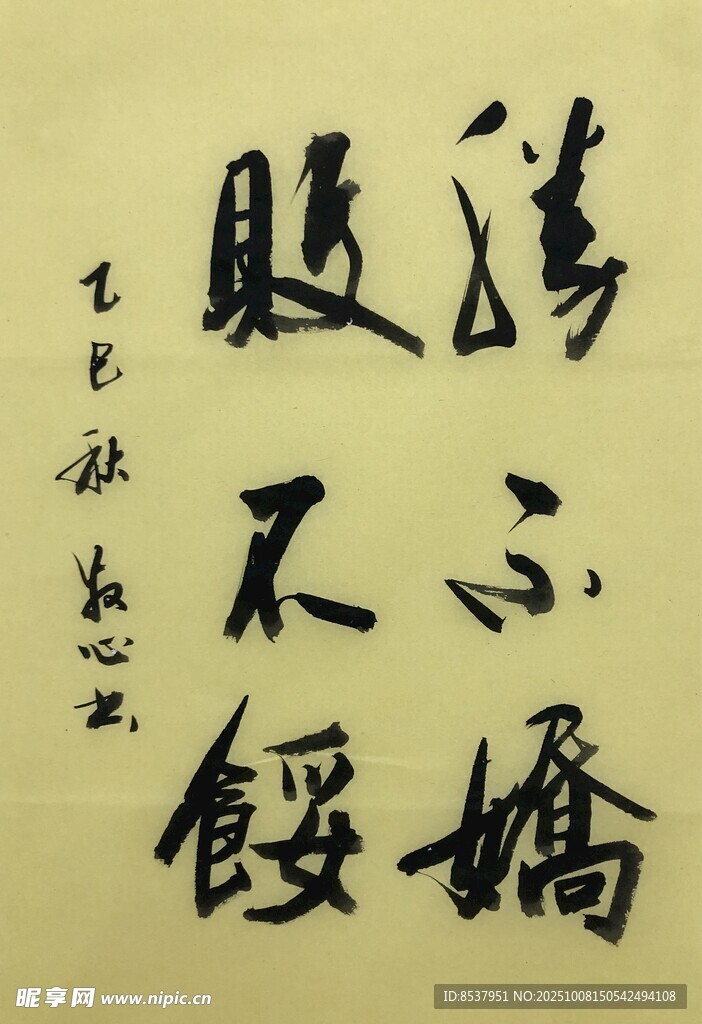 勝不嬌
敗不餒
乙巳秋牧心书
昵享网 www.nipic.cn
ID:8537951 NO:20251008150542494108